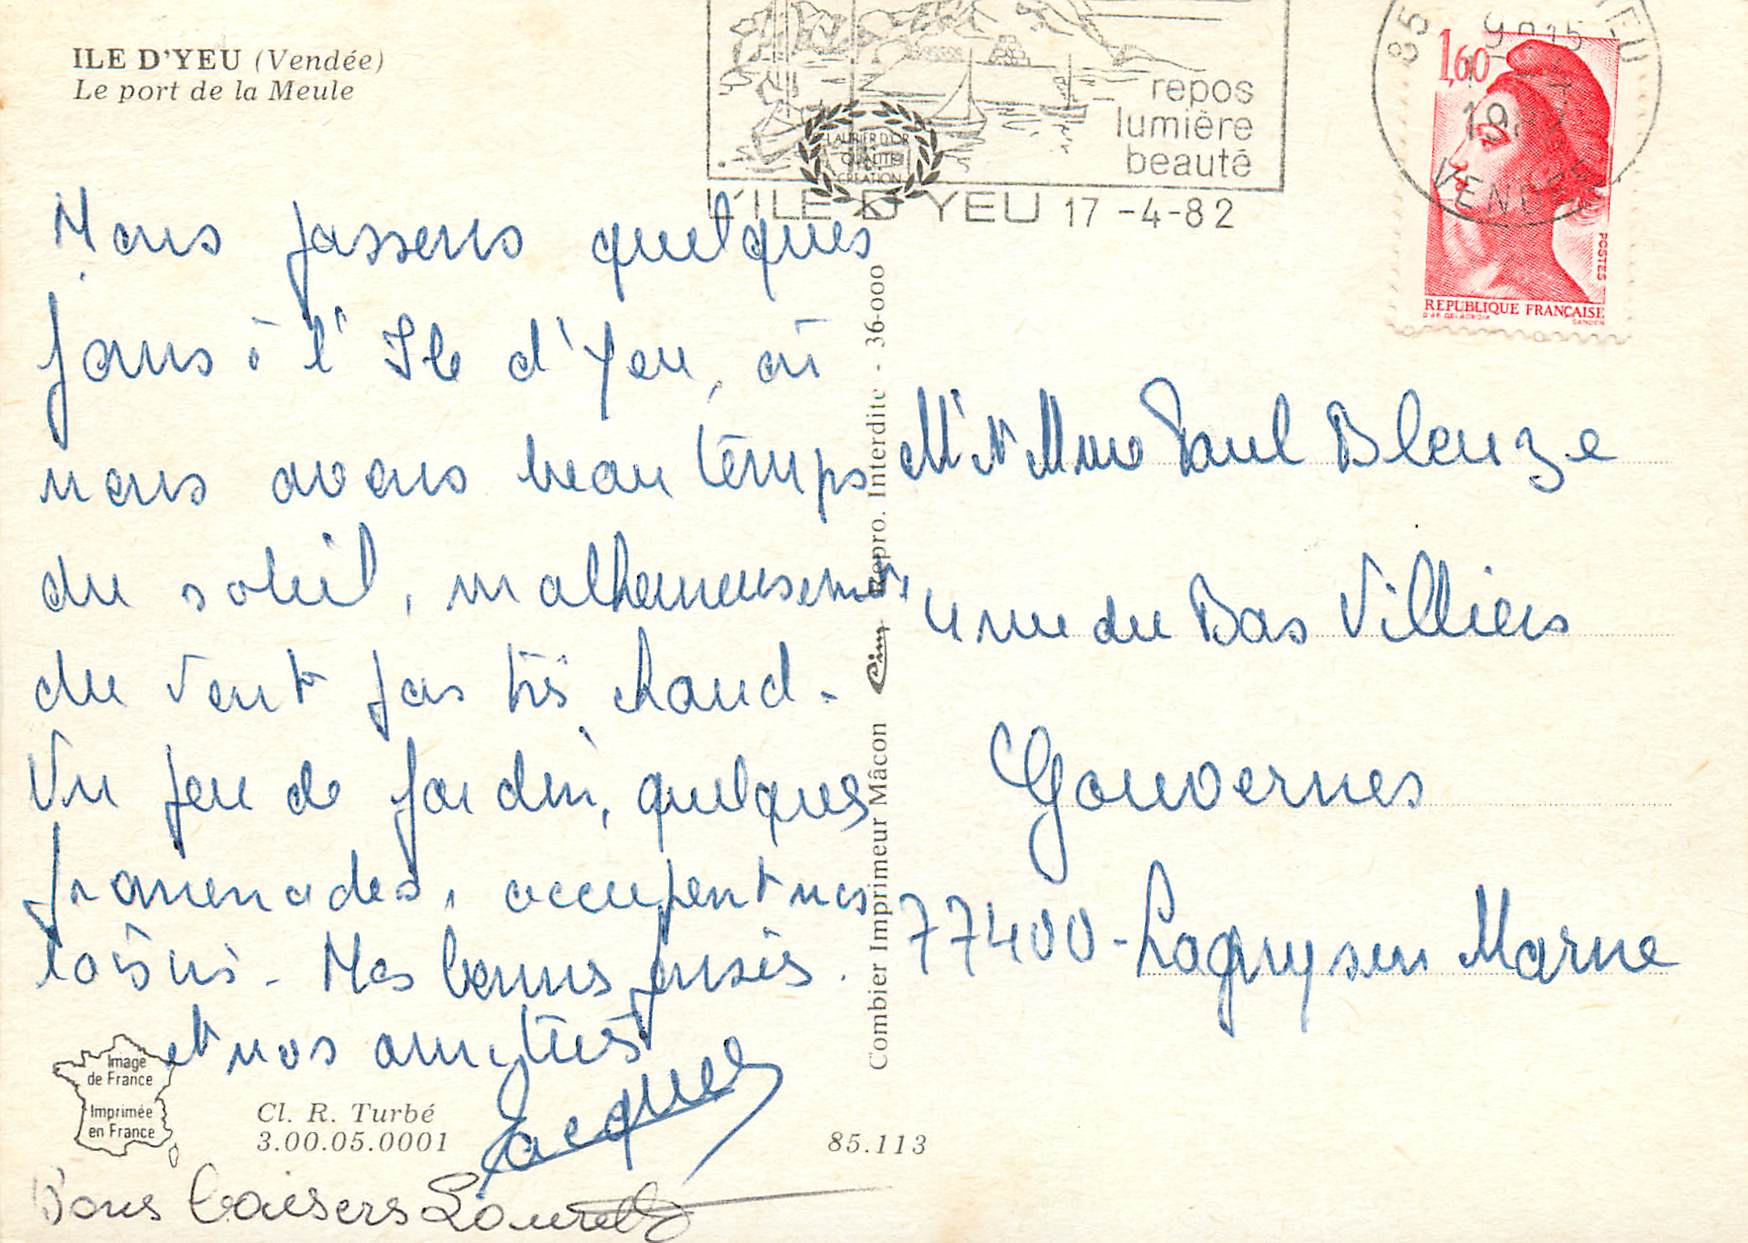 ILE D'YEU (Vendée)
Le port de la Meule
repos
lumière
beauté
LAURIER D'OR
QUALITE
CREATION
L'ILE D'YEU 17-4-82
85
1,60
VENDEE
POSTES
REPUBLIQUE FRANÇAISE
D'AP. DELACROIX
GANDON
Nous passons quelques
jours à l'Ile d'Yeu, où
nous avons beau temps
du soleil, malheureusement
du vent pas très chaud.
Un peu de jardin, quelques
promenades, occupent nos
loisirs. Mes bonnes pensées.
et nos amitiés
Jacques
Bons baisers
Combier Imprimeur Mâcon Cim Repro. Interdite - 36-000
Mr et Mme Paul Bleuze
4 rue du Bas Villiers
Gouvernes
77400 - Lagny sur Marne
Image
de France
Imprimée
en France
Cl. R. Turbé
3.00.05.0001
85.113